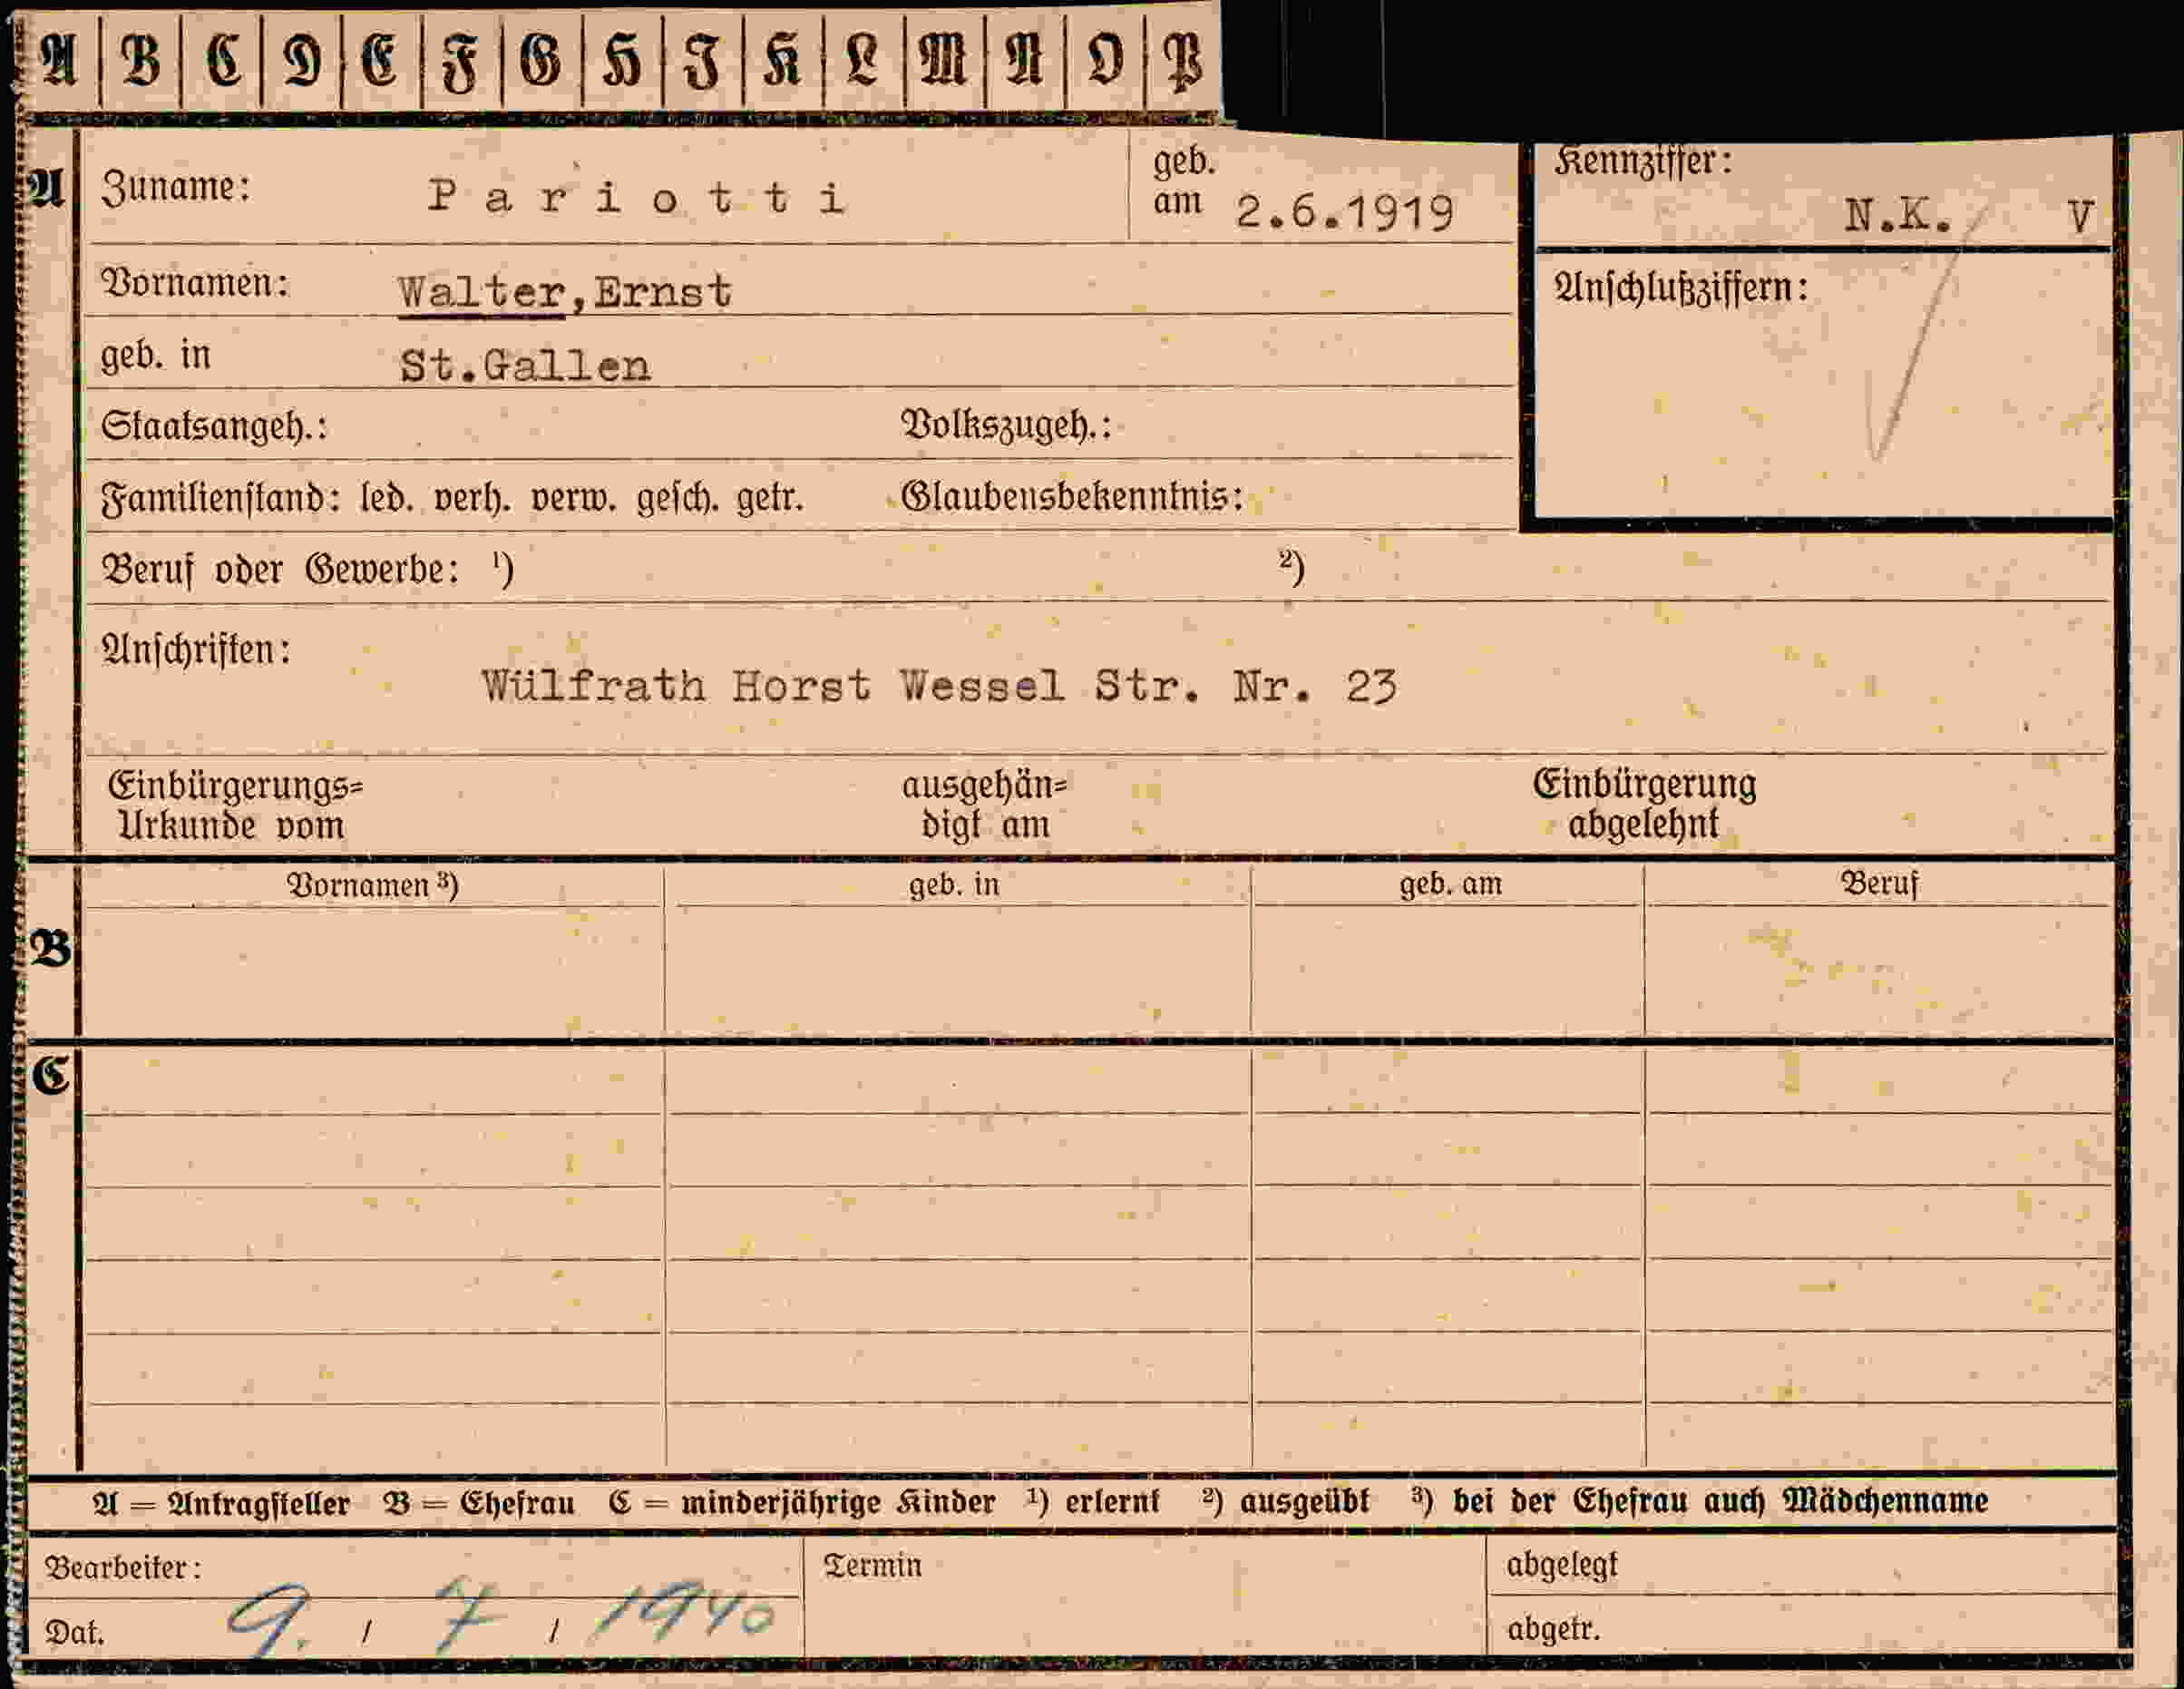 A B C D E F G H I K L M N O P
A Zuname: Pariotti geb. am 2.6.1919
Kennziffer: N.K. V
Vornamen: Walter,Ernst
Anschlußziffern:
geb. in St.Gallen
Staatsangeh.: Volkszugeh.:
Familienstand: led. verh. verw. gesch. getr. Glaubensbekenntnis:
Beruf oder Gewerbe: ¹) ²)
Anschriften:
Wülfrath Horst Wessel Str. Nr. 23
Einbürgerungs= ausgehän= Einbürgerung
Urkunde vom digt am abgelehnt
Vornamen ³) geb. in geb. am Beruf
B
C
A = Antragsteller B = Ehefrau C = minderjährige Kinder ¹) erlernt ²) ausgeübt ³) bei der Ehefrau auch Mädchenname
Bearbeiter: Termin abgelegt
Dat. 9. / 7 / 1940 abgetr.